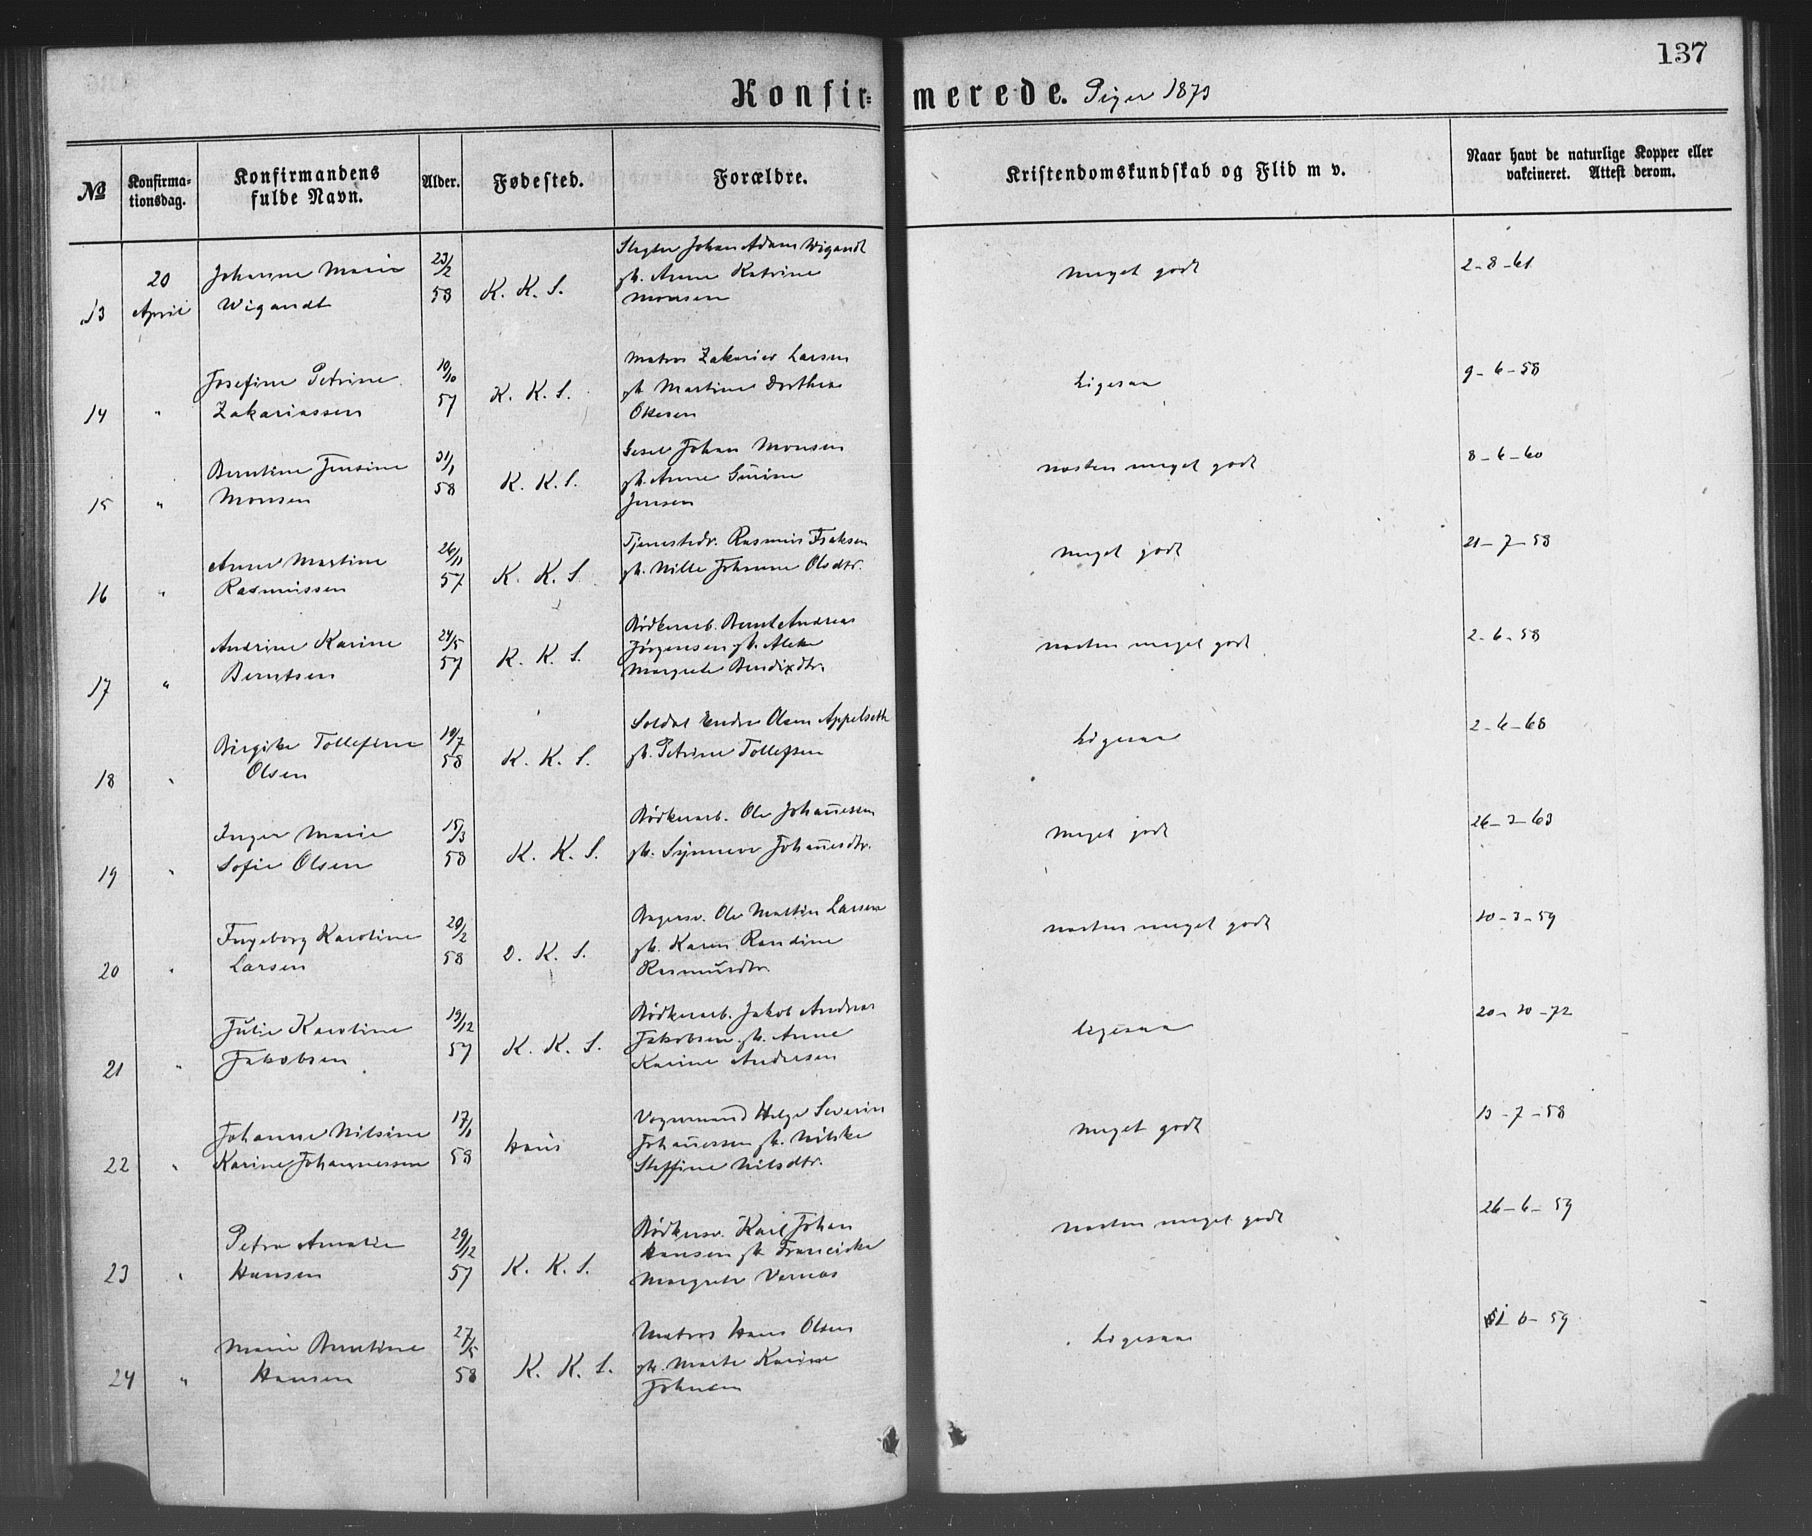 137
Konfirmerede. Piger 1873
№ Konfirmationsdag. Konfirmandens fulde Navn. Alder. Fødested. Forældre. Kristendomskundskab og Flid m v. Naar havt de naturlige Kopper eller vakcineret. Attest derom.
13 20 April Johanne Marie Wigandt 23/2 58 K. K. S. Slagter Johan Adam Wigandt gh. Anne Katrine Monsen meget godt 2-8-61
14 " Josefine Petrine Zakariassen 10/10 57 K. K. S. Matros Zakarias Larsen gh. Martine Dorthea Olsen Ligesaa 9-6-58
15 " Berntine Jensine Monsen 31/1 58 K. K. S. Johan Monsen gh. Anne Gurine Jensen næsten meget godt 8-6-60
16 " Anne Martine Rasmussen 26/11 57 K. K. S. Tjenestedr. Rasmus Isaksen gh. Nille Johanne Olsdtr. meget godt 21-7-58
17 " Andrine Karine Berntsen 24/5 57 K. K. S. Bødkerarb. Bernt Andreas Jørgensen gh. Aleke Margrete Bendixdtr. næsten meget godt 2-6-58
18 " Birgitte Tollefine Olsen 19/7 58 K. K. S. Soldat Endre Olsen Appelseth gh. Petrine Tollefsen Ligesaa 2-6-68
19 " Inger Marie Sofie Olsen 15/3 58 K. K. S. Bødkerarb. Ole Johannessen gh. Synneve Johannesdtr. meget godt 26-3-63
20 " Ingeborg Karoline Larsen 20/2 58 D. K. S. Bagersv. Ole Martin Larsen gh. Karen Randine Rasmusdtr. næsten meget godt 10-3-59
21 " Julie Karoline Jakobsen 19/12 57 K. K. S. Bødkerarb. Jakob Andreas Jakobsen gh. Anne Karine Andersen Ligesaa 20-10-72
22 " Johanne Nilsine Karine Johannessen 17/1 58 Haus Vognmand Helge Severin Johannessen gh. Nilske Steffine Nilsdtr. meget godt 13-7-58
23 " Petra Amalie Hansen 29/12 57 K. K. S. Bødkersv. Karl Johan Hansen gh. Franciske Margrete Vernøs næsten meget godt 26-6-59
24 " Marie Berntine Hansen 27/5 58 K. K. S. Matros Hans Olsen gh. Marte Karine Johnsen Ligesaa 6-59